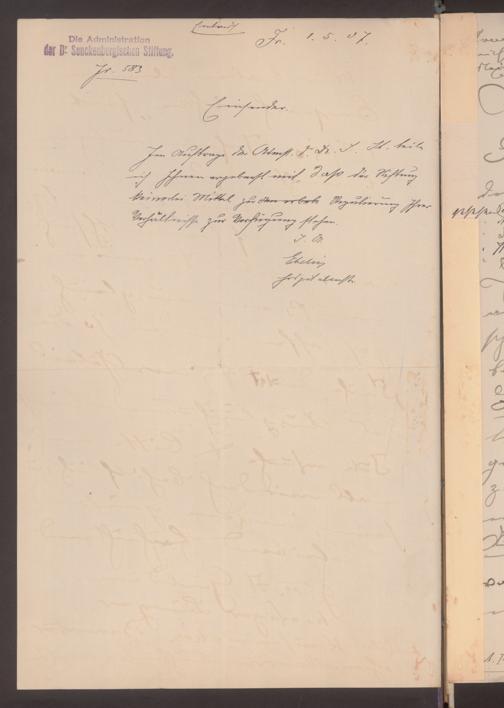 Entwurf
Die Administration
der Dr Senckenbergischen Stiftung.
Fr. 1. 5. 07.
Jr. 583
Einsender.
Im Auftrage der Admst. d. Dr. S. St. teile
ich Ihnen ergebenst mit, daß der Stiftung
keinerlei Mittel zu Regulierung Ihrer
Verhältnisse zur Verfügung stehen.
I. A.